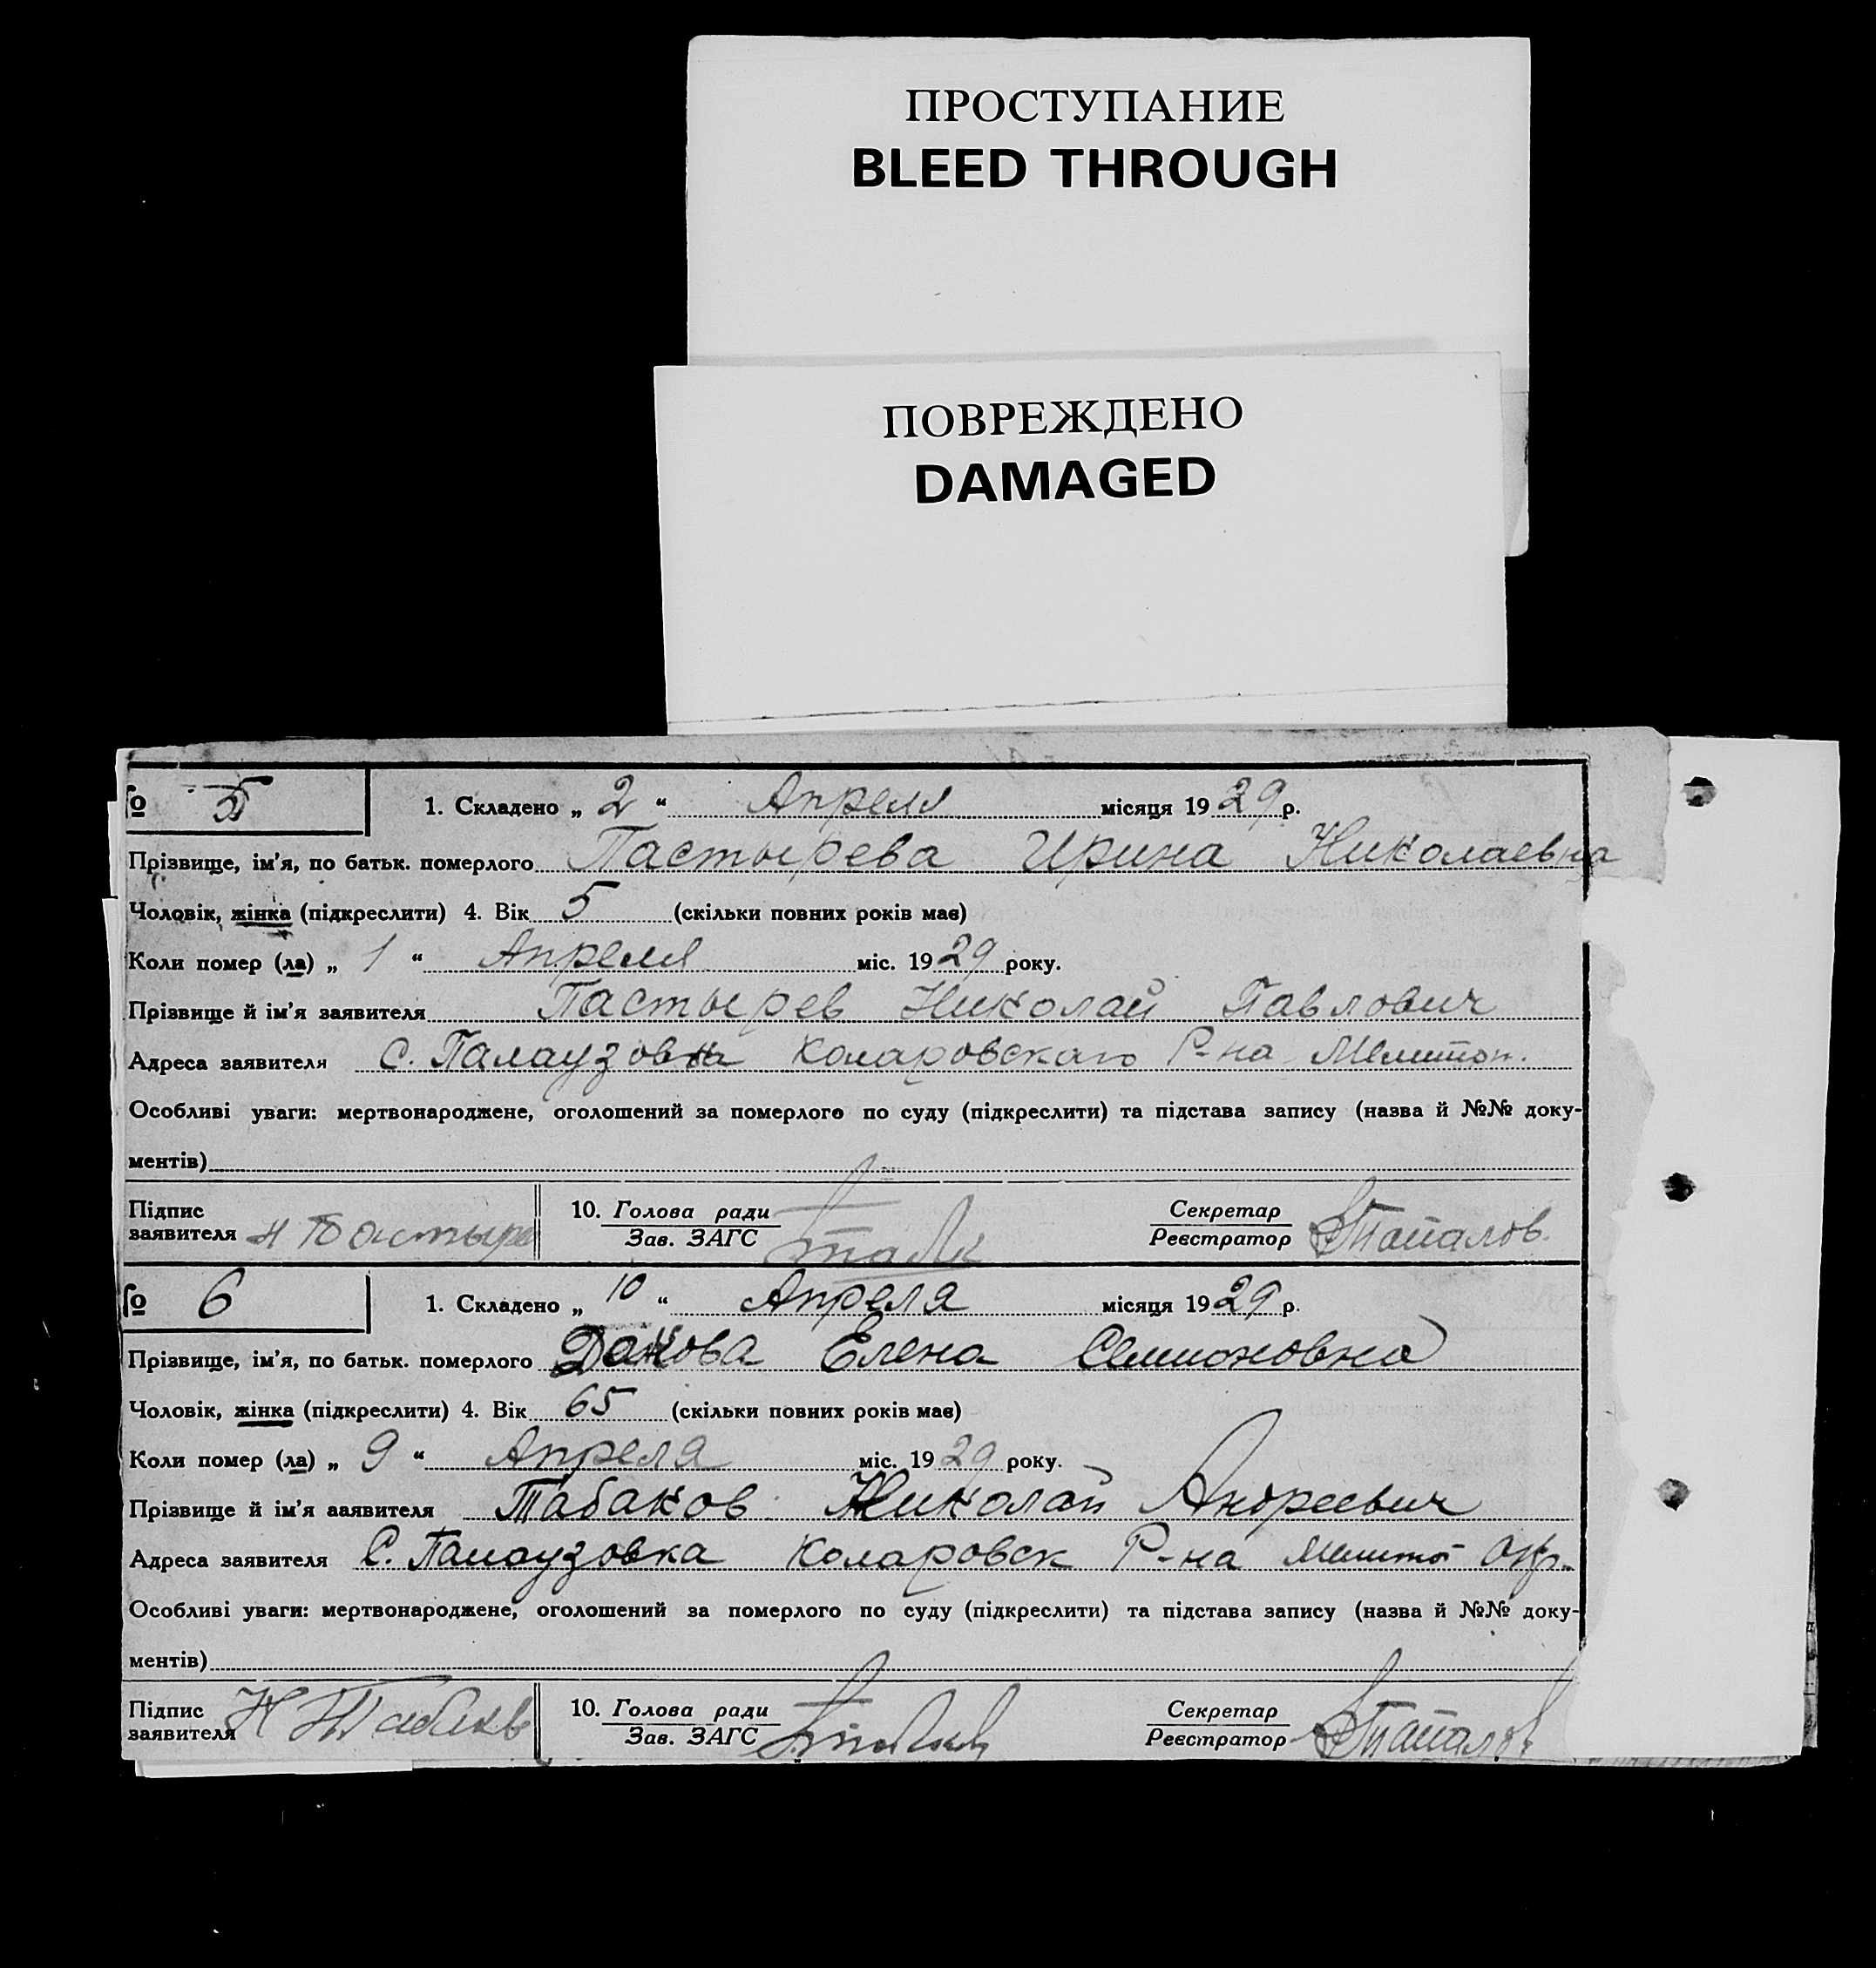 ПРОСТУПАНИЕ
BLEED THROUGH
ПОВРЕЖДЕНО
DAMAGED
№ 5 1. Складено „ 2 “ Апреля місяця 1929 р.
Прізвище, ім’я, по батьк. померлого Пастырева Ирина Николаевна
Чоловік, жінка (підкреслити) 4. Вік 5 (скільки повних років має)
Коли помер (ла) „ 1 “ Апреля міс. 1929 року.
Прізвище й ім’я заявителя Пастырев Николай Павлович
Адреса заявителя С. Палаузовка Коларовскаго Р-на Мелитоп.
Особливі уваги: мертвонароджене, оголошений за померлого по суду (підкреслити) та підстава запису (назва й №№ доку-
ментів)
Підпис заявителя Н Пастыре 10. Голова ради Зав. ЗАГС Секретар Реєстратор
№ 6 1. Складено „ 10 “ Апреля місяця 1929 р.
Прізвище, ім’я, по батьк. померлого Дакова Елена Семионовна
Чоловік, жінка (підкреслити) 4. Вік 65 (скільки повних років має)
Коли помер (ла) „ 9 “ Апреля міс. 1929 року.
Прізвище й ім’я ааявителя Табаков Николай Андреевич
Адреса заявителя С. Палаузовка Коларовск Р-на Мелито Окр.
Особливі уваги: мертвонароджене, оголошений за померлого по суду (підкреслити) та підстава запису (назва й №№ доку-
ментів)
Підпис заявителя Н Табаков 10. Голова ради Зав. ЗАГС Секретар Реєстратор